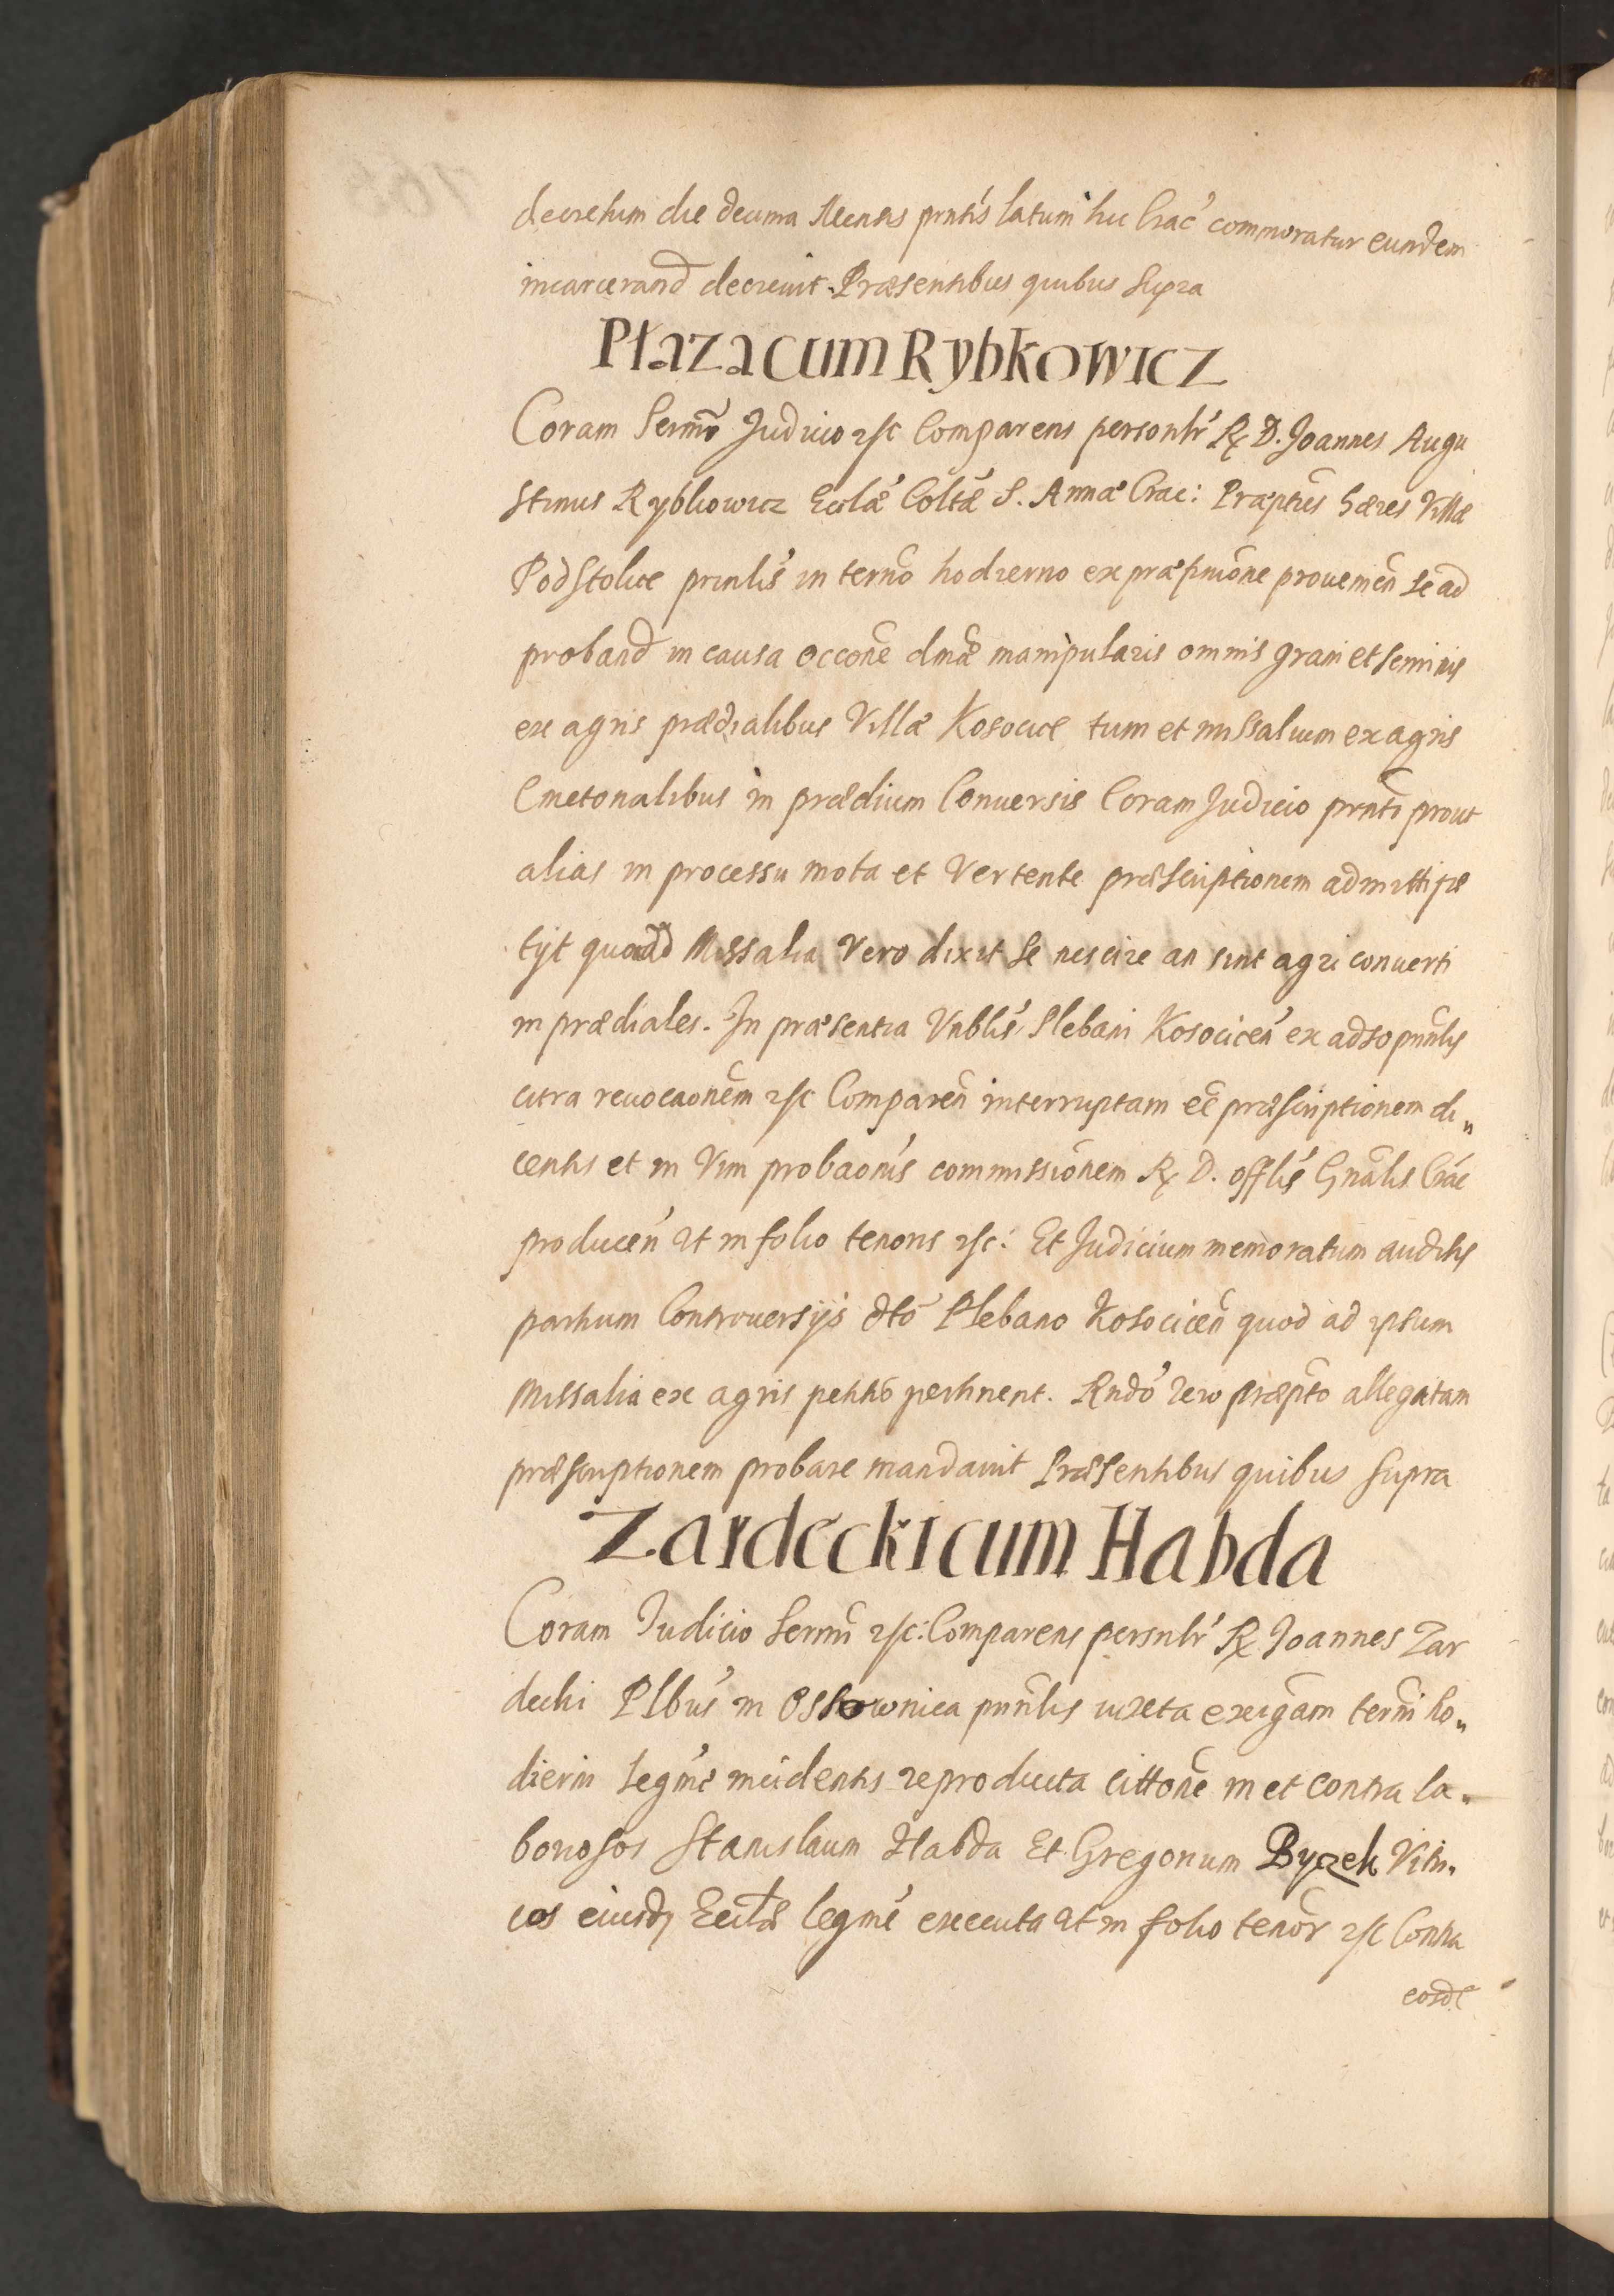 decretum die decima Mensis prntis latum hic Crac commoratur eundem
incarcerand decrevit. Præsentibus quibus supra
Płaza cum Rybkowicz
Coram Sermo Judicio etc Comparens personlr Rx D. Joannes Augu
stinus Rybkowicz Ecclæ Coltæ S. Annæ Crac: Præptus hæres Villæ
Podstolice prinlis in termo hodierno ex præfinione provenien se ad
proband in causa occone dmæ manipularis omnis grani et seminis
ex agris prædialibus Villæ Kosocice tum et missalium ex agris
Cmetonalibus in prædium Conversis Coram Judicio prnti prout
alias in processu mota et Vertente præscriptionem admitti pe
tijt quoad Missalia Vero dixit se nescire an sint agri converti
in prædiales. In præsentia Vnblis Plebani Kosocicen ex adso prinlis
citra revocaonem etc Comparen interruptam eē præscriptionem di„
centis et in Vim probaonis commissionem Rx D. offlis Gnalis Crac
producen ut in folio tenoris etc: Et Judicium memoratum auditis
partium Controversijs dto Plebano Kosocicen quod ad ipsum
Missalia ex agris petitis pertinent. Rndo Vero præpto allegatam
præscriptionem probare mandavit Præsentibus quibus supra
Zardecki cum Habda
Coram Judicio Sermi etc: Comparens persnlr Rx Joannes Zar
decki Plbus in Ossownica prinlis iuxta exigam termi ho„
dierni legme incidentis reproducta cittone in et contra la„
boriosos Stanislaum Habda Et Gregorium Byczek Vitri„
cos eiusdz Ecclæ legme executa ut in folio tenor etc Contra
eosde